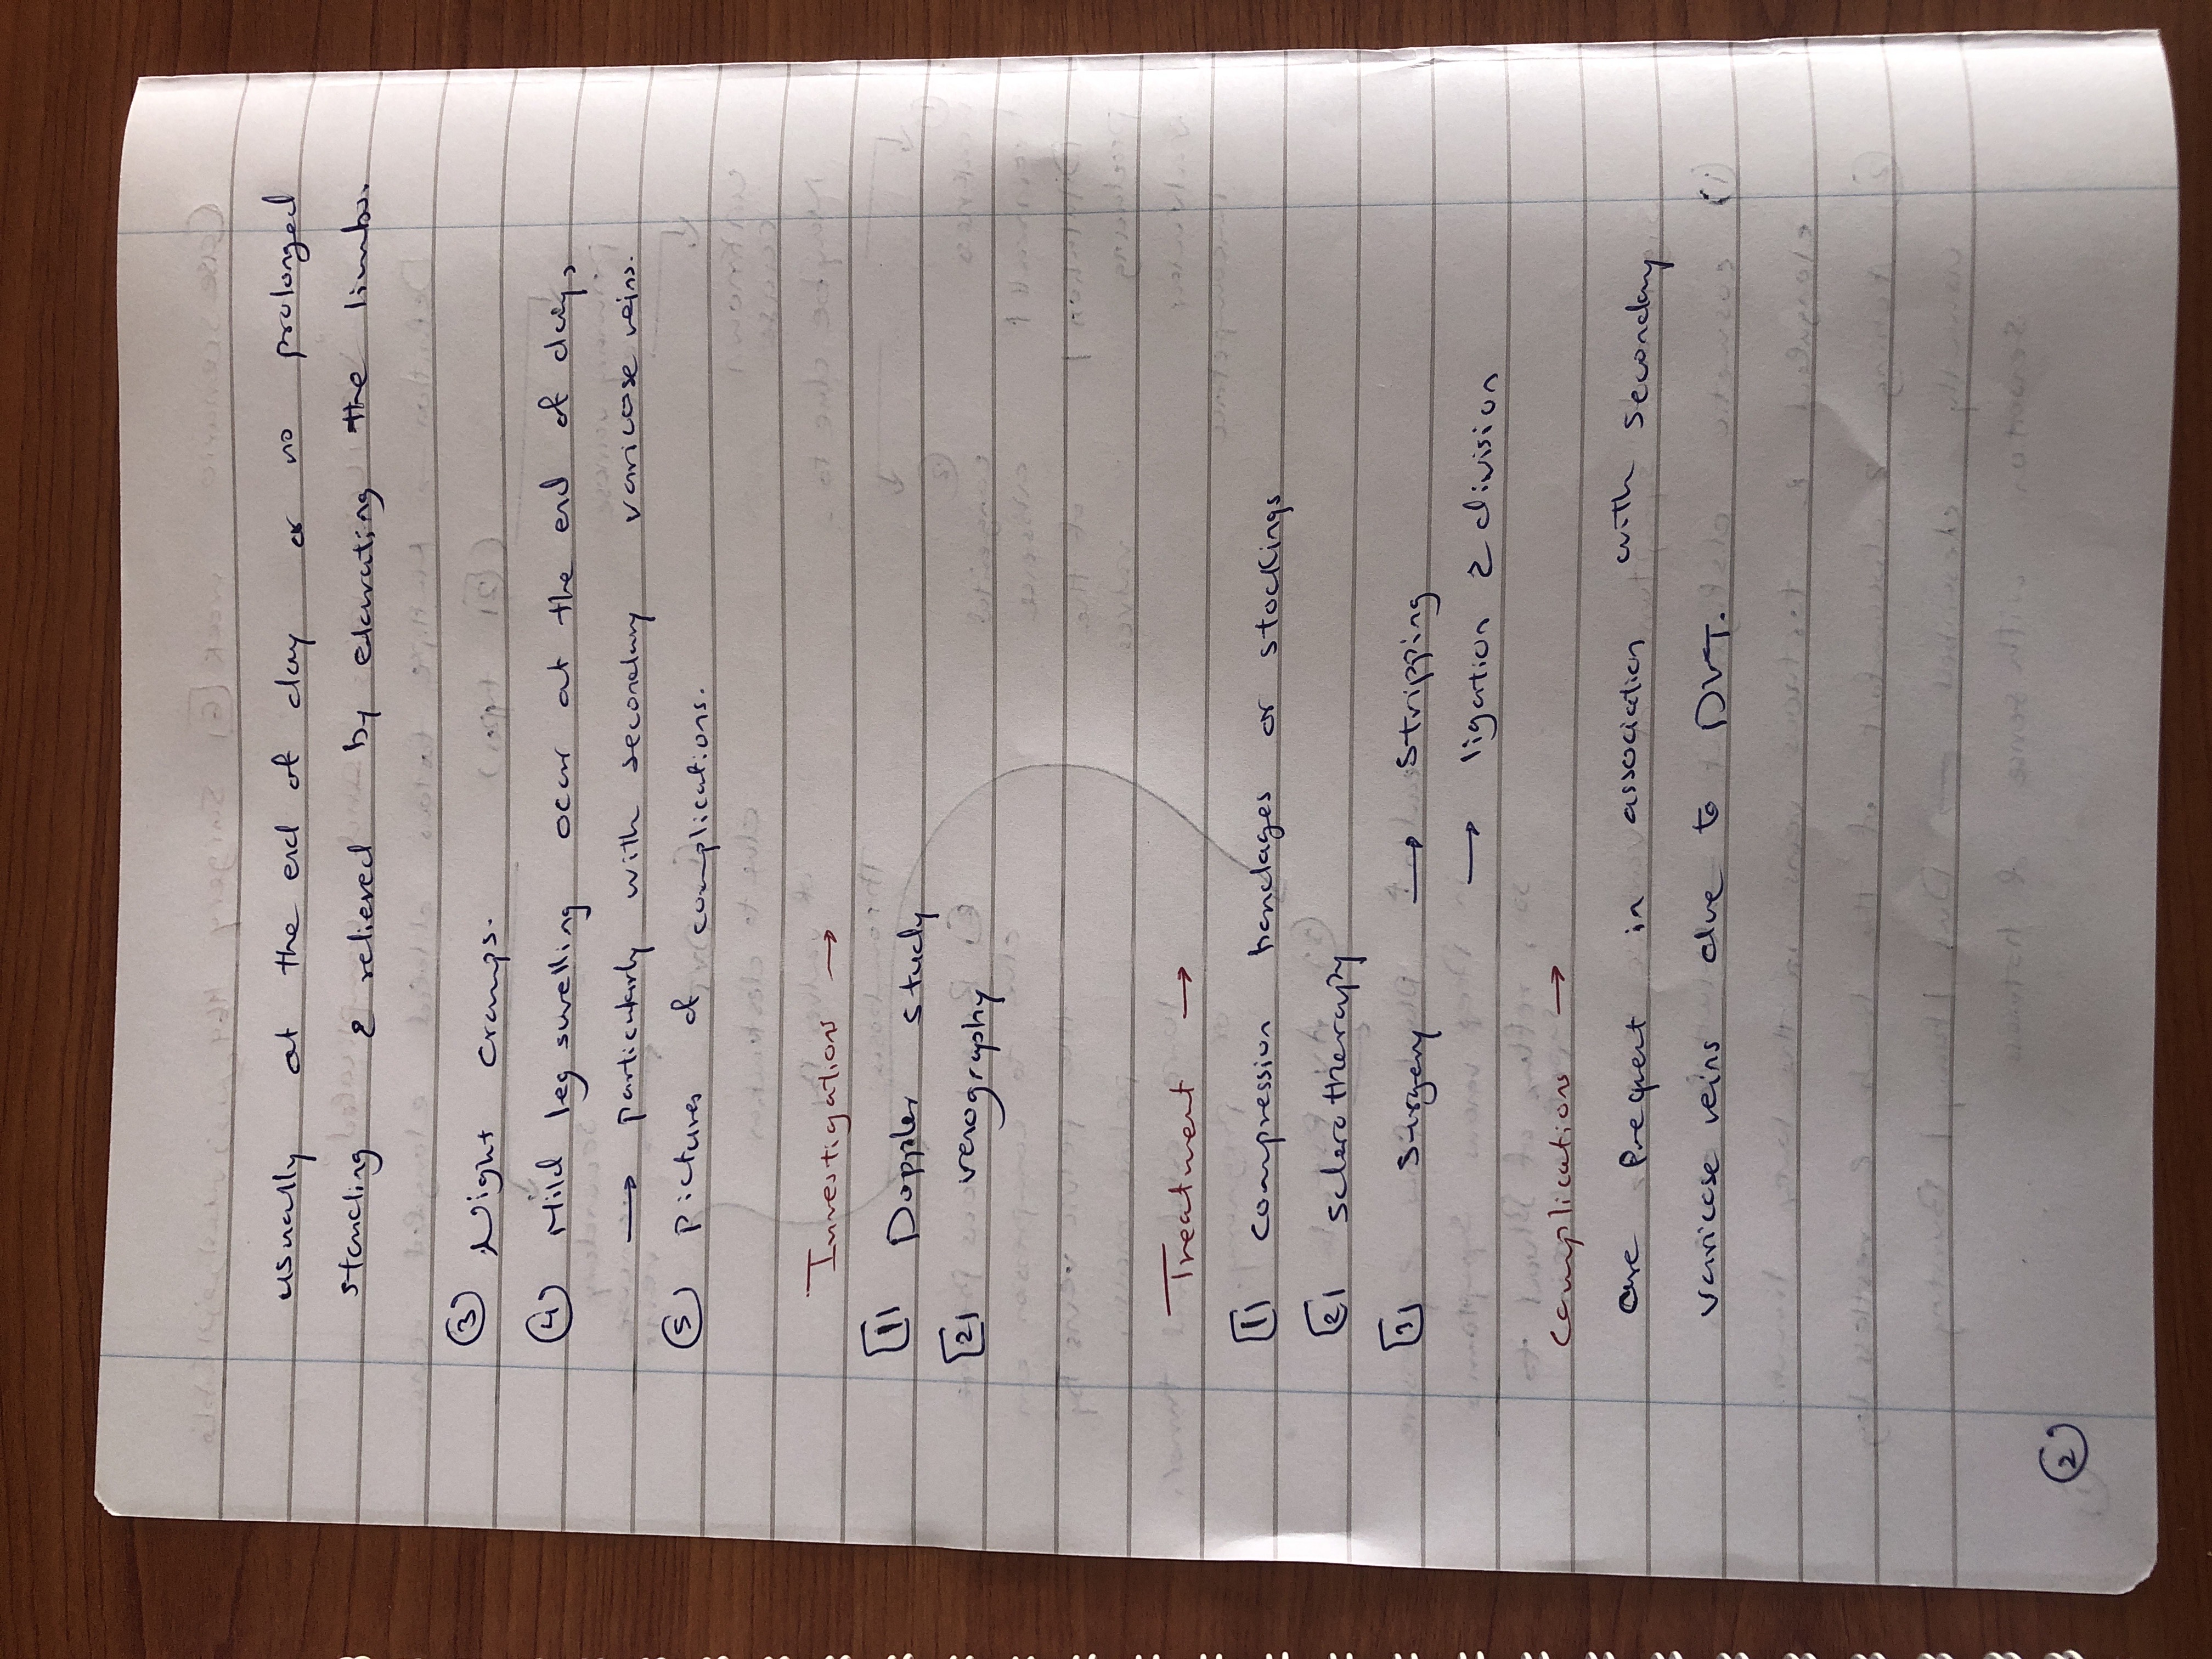 usually at the end of day or no prolonged
standing & relieved by elevating the limbs.
③ Night cramps.
④ Mild leg swelling occur at the end of day,
→ particularly with secondary varicose veins.
⑤ Pictures of complications.
Investigations →
[1] Doppler study
[2] venography
Treatment →
[1] compression bandages or stockings
[2] sclerotherapy
[3] surgery → stripping
→ ligation & division
complications →
are frequent in association with secondary
varicose veins due to DVT.
②